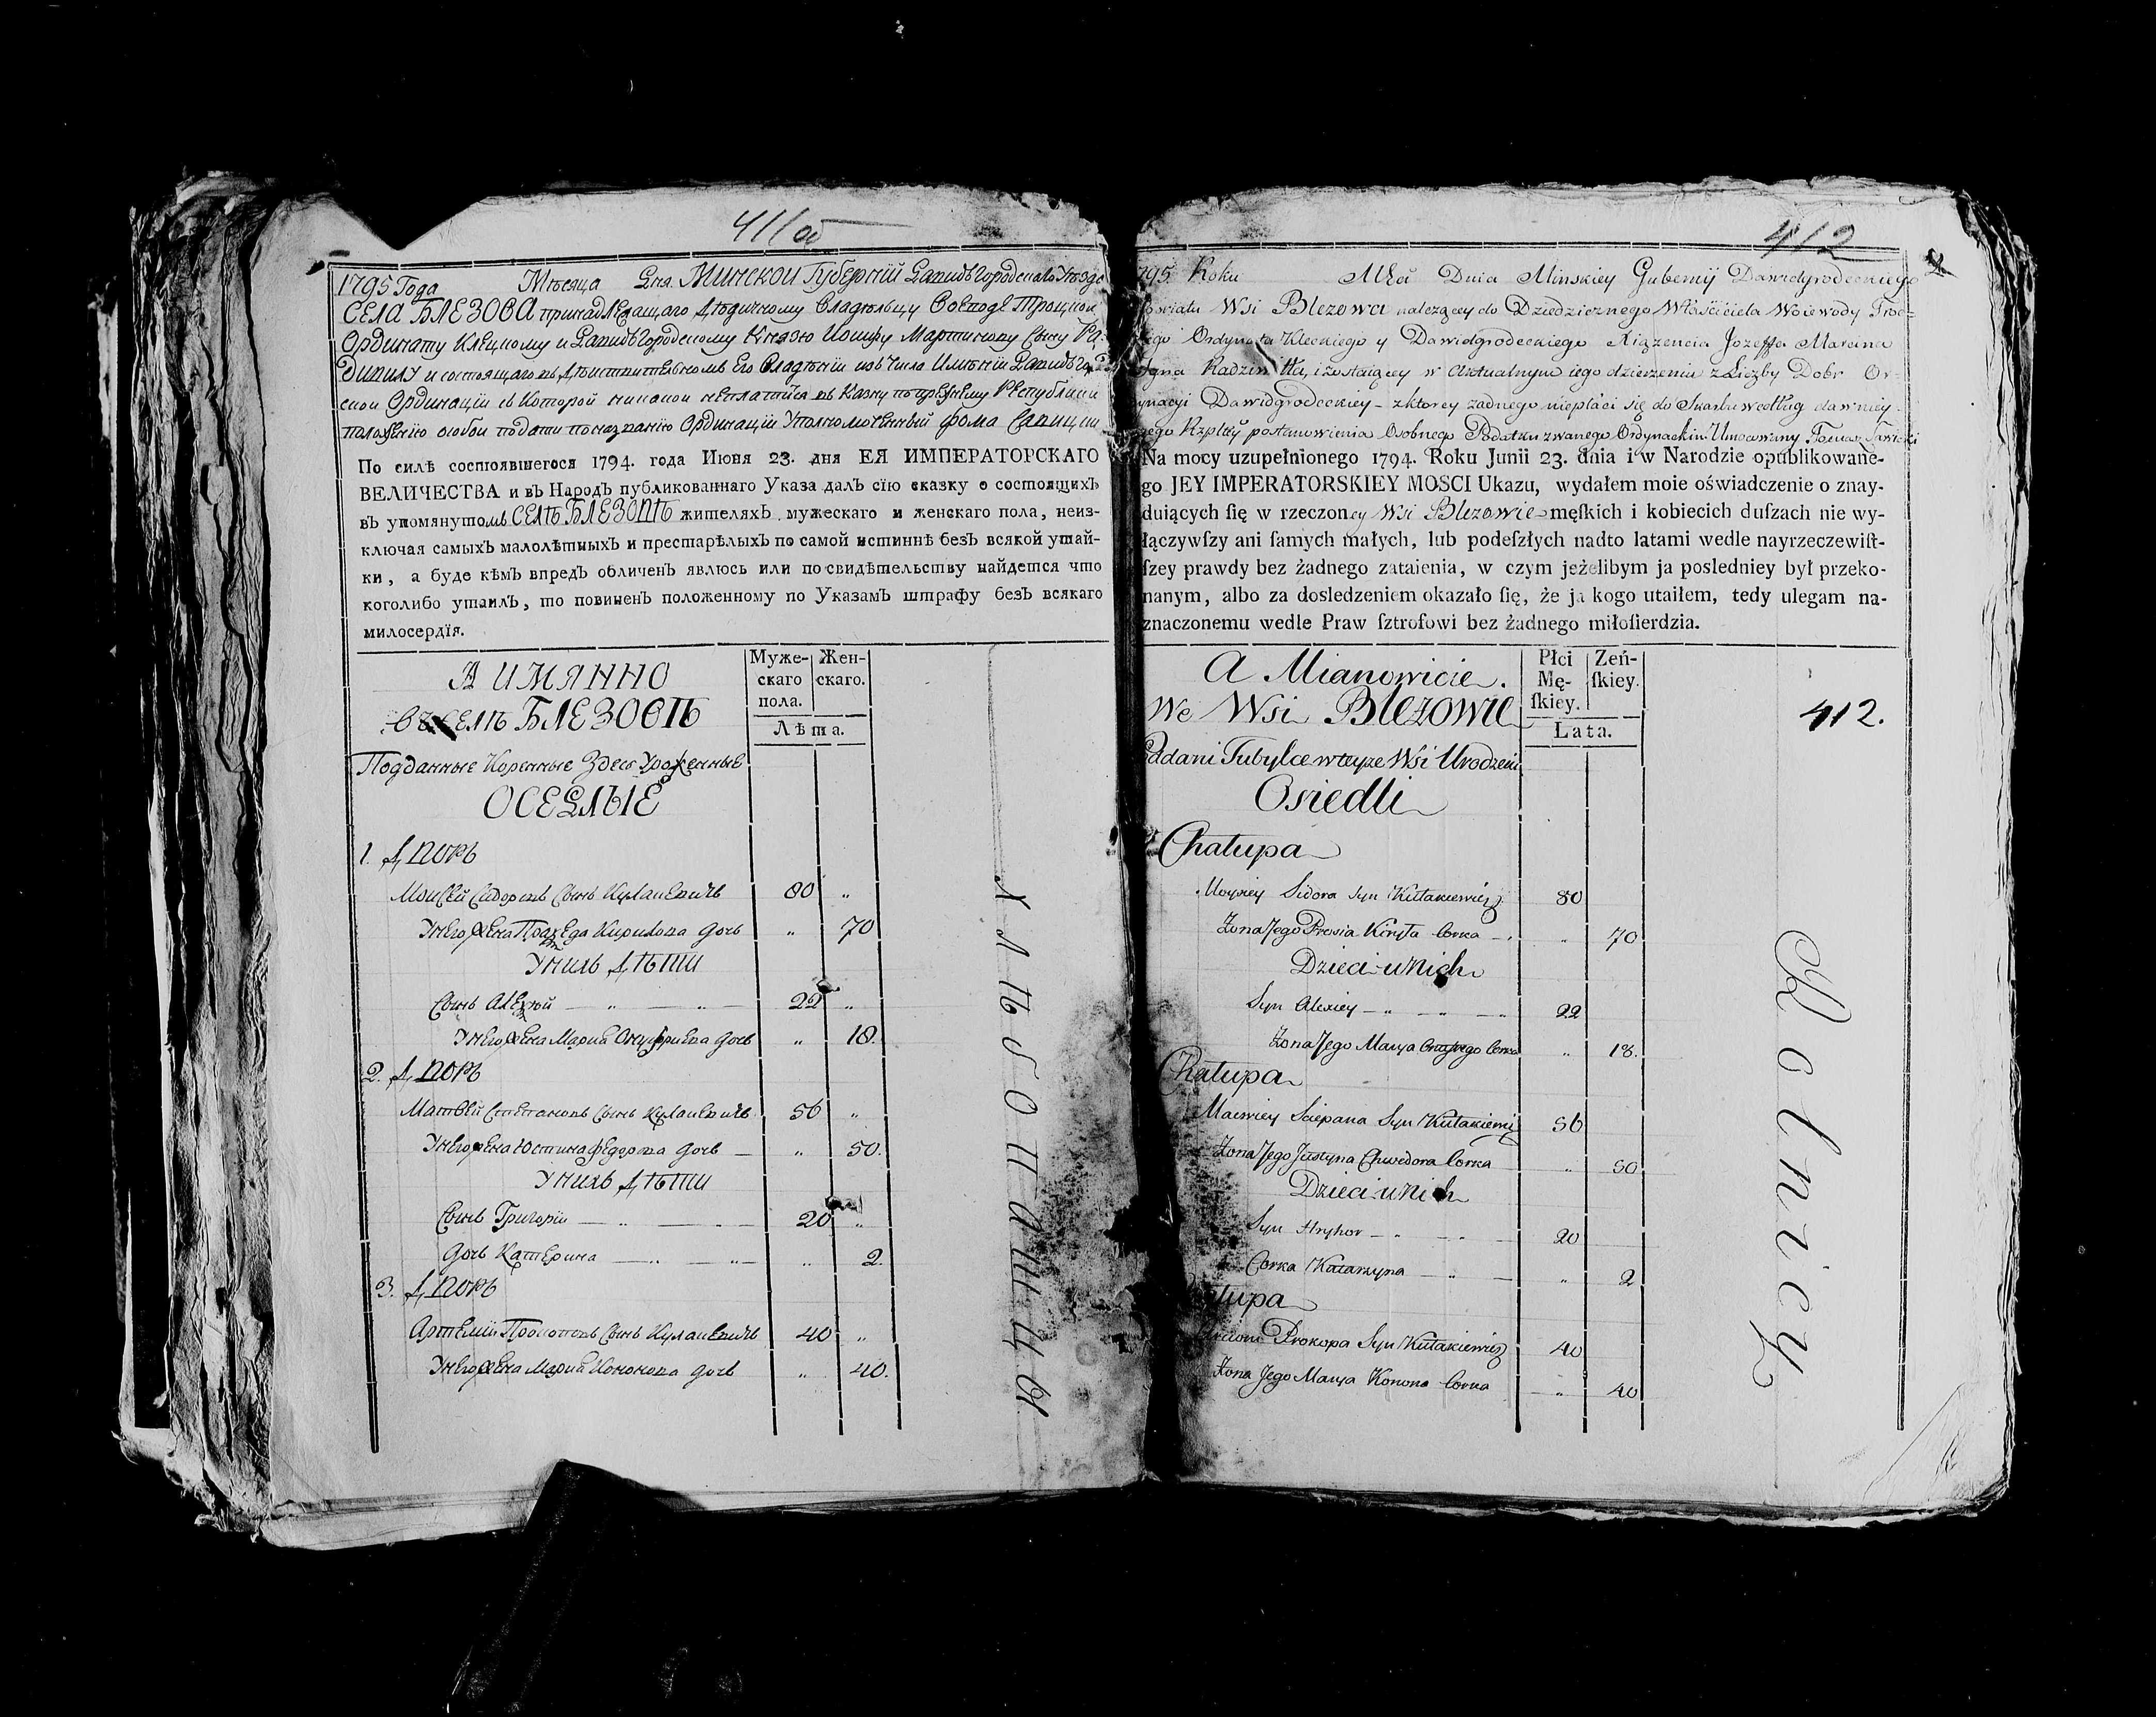 411об
1795 Года Мѣсяца Дня Минской Губернїи Давидъгородскаго Уѣзда
СЕЛА БЛЕЗОВА принадлежащаго Дѣдичному Владѣльцу Воеводѣ Троцкому
Ординату Клецкому и Давидъгородскому Князю Иосифу Мартинову Сыну Ра-
дивилу и состоящаго въ дѣиствительномъ Его Владѣнїи изъ числа Имѣнїй Давидъгород-
скои Ординацїи съ которой никакои неплатится въ Казну по прежнему Республики
положенїю особои подати по названїю Ординацїи Уполномоченный Фома Савицки
По силѣ состоявшегося 1794. года Июня 23. дня ЕЯ ИМПЕРАТОРСКАГО
ВЕЛИЧЕСТВА и въ Народъ публикованнаго Указа далъ сїю сказку о состоящихъ
въ упомянутомъ СЕЛѢ БЛЕЗОВѢ жителяхъ мужескаго и женскаго пола, неиз-
ключая самыхъ малолѣтныхъ и престарѣлыхъ по самой истиннѣ безъ всякой утай-
ки, а буде кѣмъ впредъ обличенъ явлюсь или по свидѣтельству найдется что
коголибо утаилъ, то повиненъ положенному по Указамъ штрафу безъ всякаго
милосердїя.
А ИМЯННО
Муже-скаго пола.
Жен-скаго.
Лѣта.
въ СЕЛѢ БЛЕЗОВѢ
Подданные Коренные Здесь Урожденные
ОСЕДЛЫЕ
1. Дворъ
Моисей Сидоровъ Сынъ Кулакевичъ 80 "
У него Жена Пракседа Кирилова дочь " 70
У нихъ Дѣти
Сынъ Алексѣй — " — " — 22 "
У него Жена Мария Онуфриева дочь " 18.
2. Дворъ
Матвей Степановъ Сынъ Кулакевичъ 56 "
У него Жена Юстина Федорова дочь — " 50.
У нихъ Дѣти
Сынъ Григорїи — " — " — 20 "
Дочь Катерина — " — " — " 2.
3. Дворъ
Артемїи Прокоповъ Сынъ Кулакевичъ 40 "
У него Жена Мария Кононова дочь " 40.
Хлѣбопашцы
412
795 Roku Mśca Dnia Minskiey Gubernij Dawidgrodeckiego
Powiatu Wsi Blezowa należącey do Dziedzicznego Właściciela Woiewody Troc-
kiego Ordynata Kleckiego y Dawidgrodeckiego Xiązencia Jozeffa Marcina
Syna Radziwiłła, i zostaiącey w aktualnym iego dzierzeniu z Liczby Dobr Or-
dynacyi Dawidgrodeckiey - z ktorey żadnego niepłaci się do Skarbu według dawniey-
szego Rzpltey postanowienia Osobnego Podatku zwanego Ordynackim Umocowany Tomasz Sawicki
Na mocy uzupełnionego 1794. Roku Junii 23. dnia i w Narodzie opublikowane-
go JEY IMPERATORSKIEY MOSCI Ukazu, wydałem moie oświadczenie o znay-
duiących ſię w rzeczoney Wsi Blezowie męſkich i kobiecich duſzach nie wy-
łączywſzy ani ſamych małych, lub podeſzłych nadto latami wedle nayrzeczewiſt-
ſzey prawdy bez żadnego zataienia, w czym jeżelibym ja posledniey był przeko-
nanym, albo za dosledzeniem okazało ſię, że ja kogo utaiłem, tedy ulegam na-
znaczonemu wedle Praw ſztrofowi bez żadnego miłoſierdzia.
A Mianowicie.
Płci Mę-ſkiey.
Zeń-ſkiey.
Lata.
We Wsi Blezowie
412.
Poddani Tubylce w teyze Wsi Urodzeni
Osiedli
Chałupa
Moysiey Sidora Syn Kułakiewicz 80
Żona Jego Prosia Kiryła Corka — " " 70
Dzieci u Nich
Syn Alexiey — " — — " 22
Żona Jego Marya Onufrego Corka " 18.
Chałupa
Maciey Sciepana Syn Kułakiewicz 56
Żona Jego Justyna Chwedora Corka " 50
Dzieci u Nich
Syn Hryhor — " — " — 20
Corka Katarzyna — " — " 2
Chałupa
Arciom Prokopa Syn Kułakiewicz 40
Żona Jego Marya Konona Corka — " — 40
Rolnicy